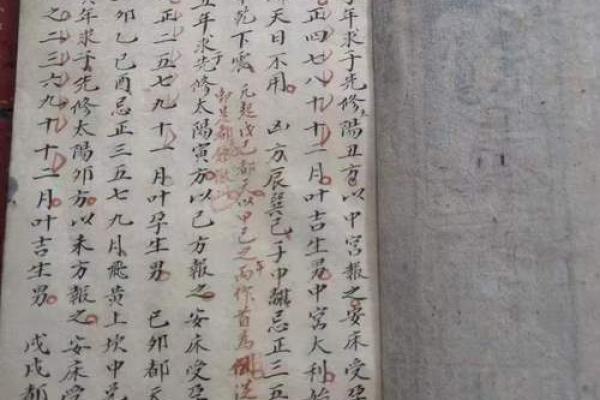 年求子先修陽丑方以中宫報之安床受孕
正四七八九十二月叶吉生男中宫大利
天日不用 凶方辰巽巳子中離忌正三五
乾下震 元起戊己都天以甲己之而作首為
年求子先修太陽寅方以巳方報之安床受孕
正二五七九十一月叶孕生男 己卯都天
卯乙巳酉忌正三五七九月飛黄上坎中
年求子先修太陽卯方以未方報之安床受
之二三六九十十二月叶吉生男 戊戌都